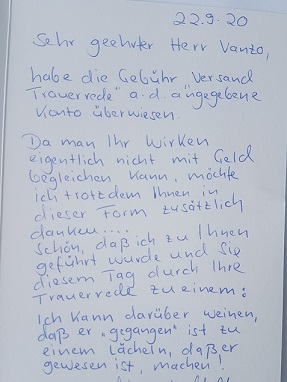 22.9.20
Sehr geehrter Herr Vanzo,
habe die Gebühr "Versand
Trauerrede" a.d. angegebene
Konto überwiesen.
Da man Ihr Wirken
eigentlich nicht mit Geld
begleichen kann, möchte
ich trotzdem Ihnen in
dieser Form zusätzlich
danken....
Schön, daß ich zu Ihnen
geführt wurde und Sie
diesem Tag durch Ihre
Trauerrede zu einem:
Ich kann darüber weinen,
daß er "gegangen" ist zu
einem Lächeln, daß er
gewesen ist, machen!